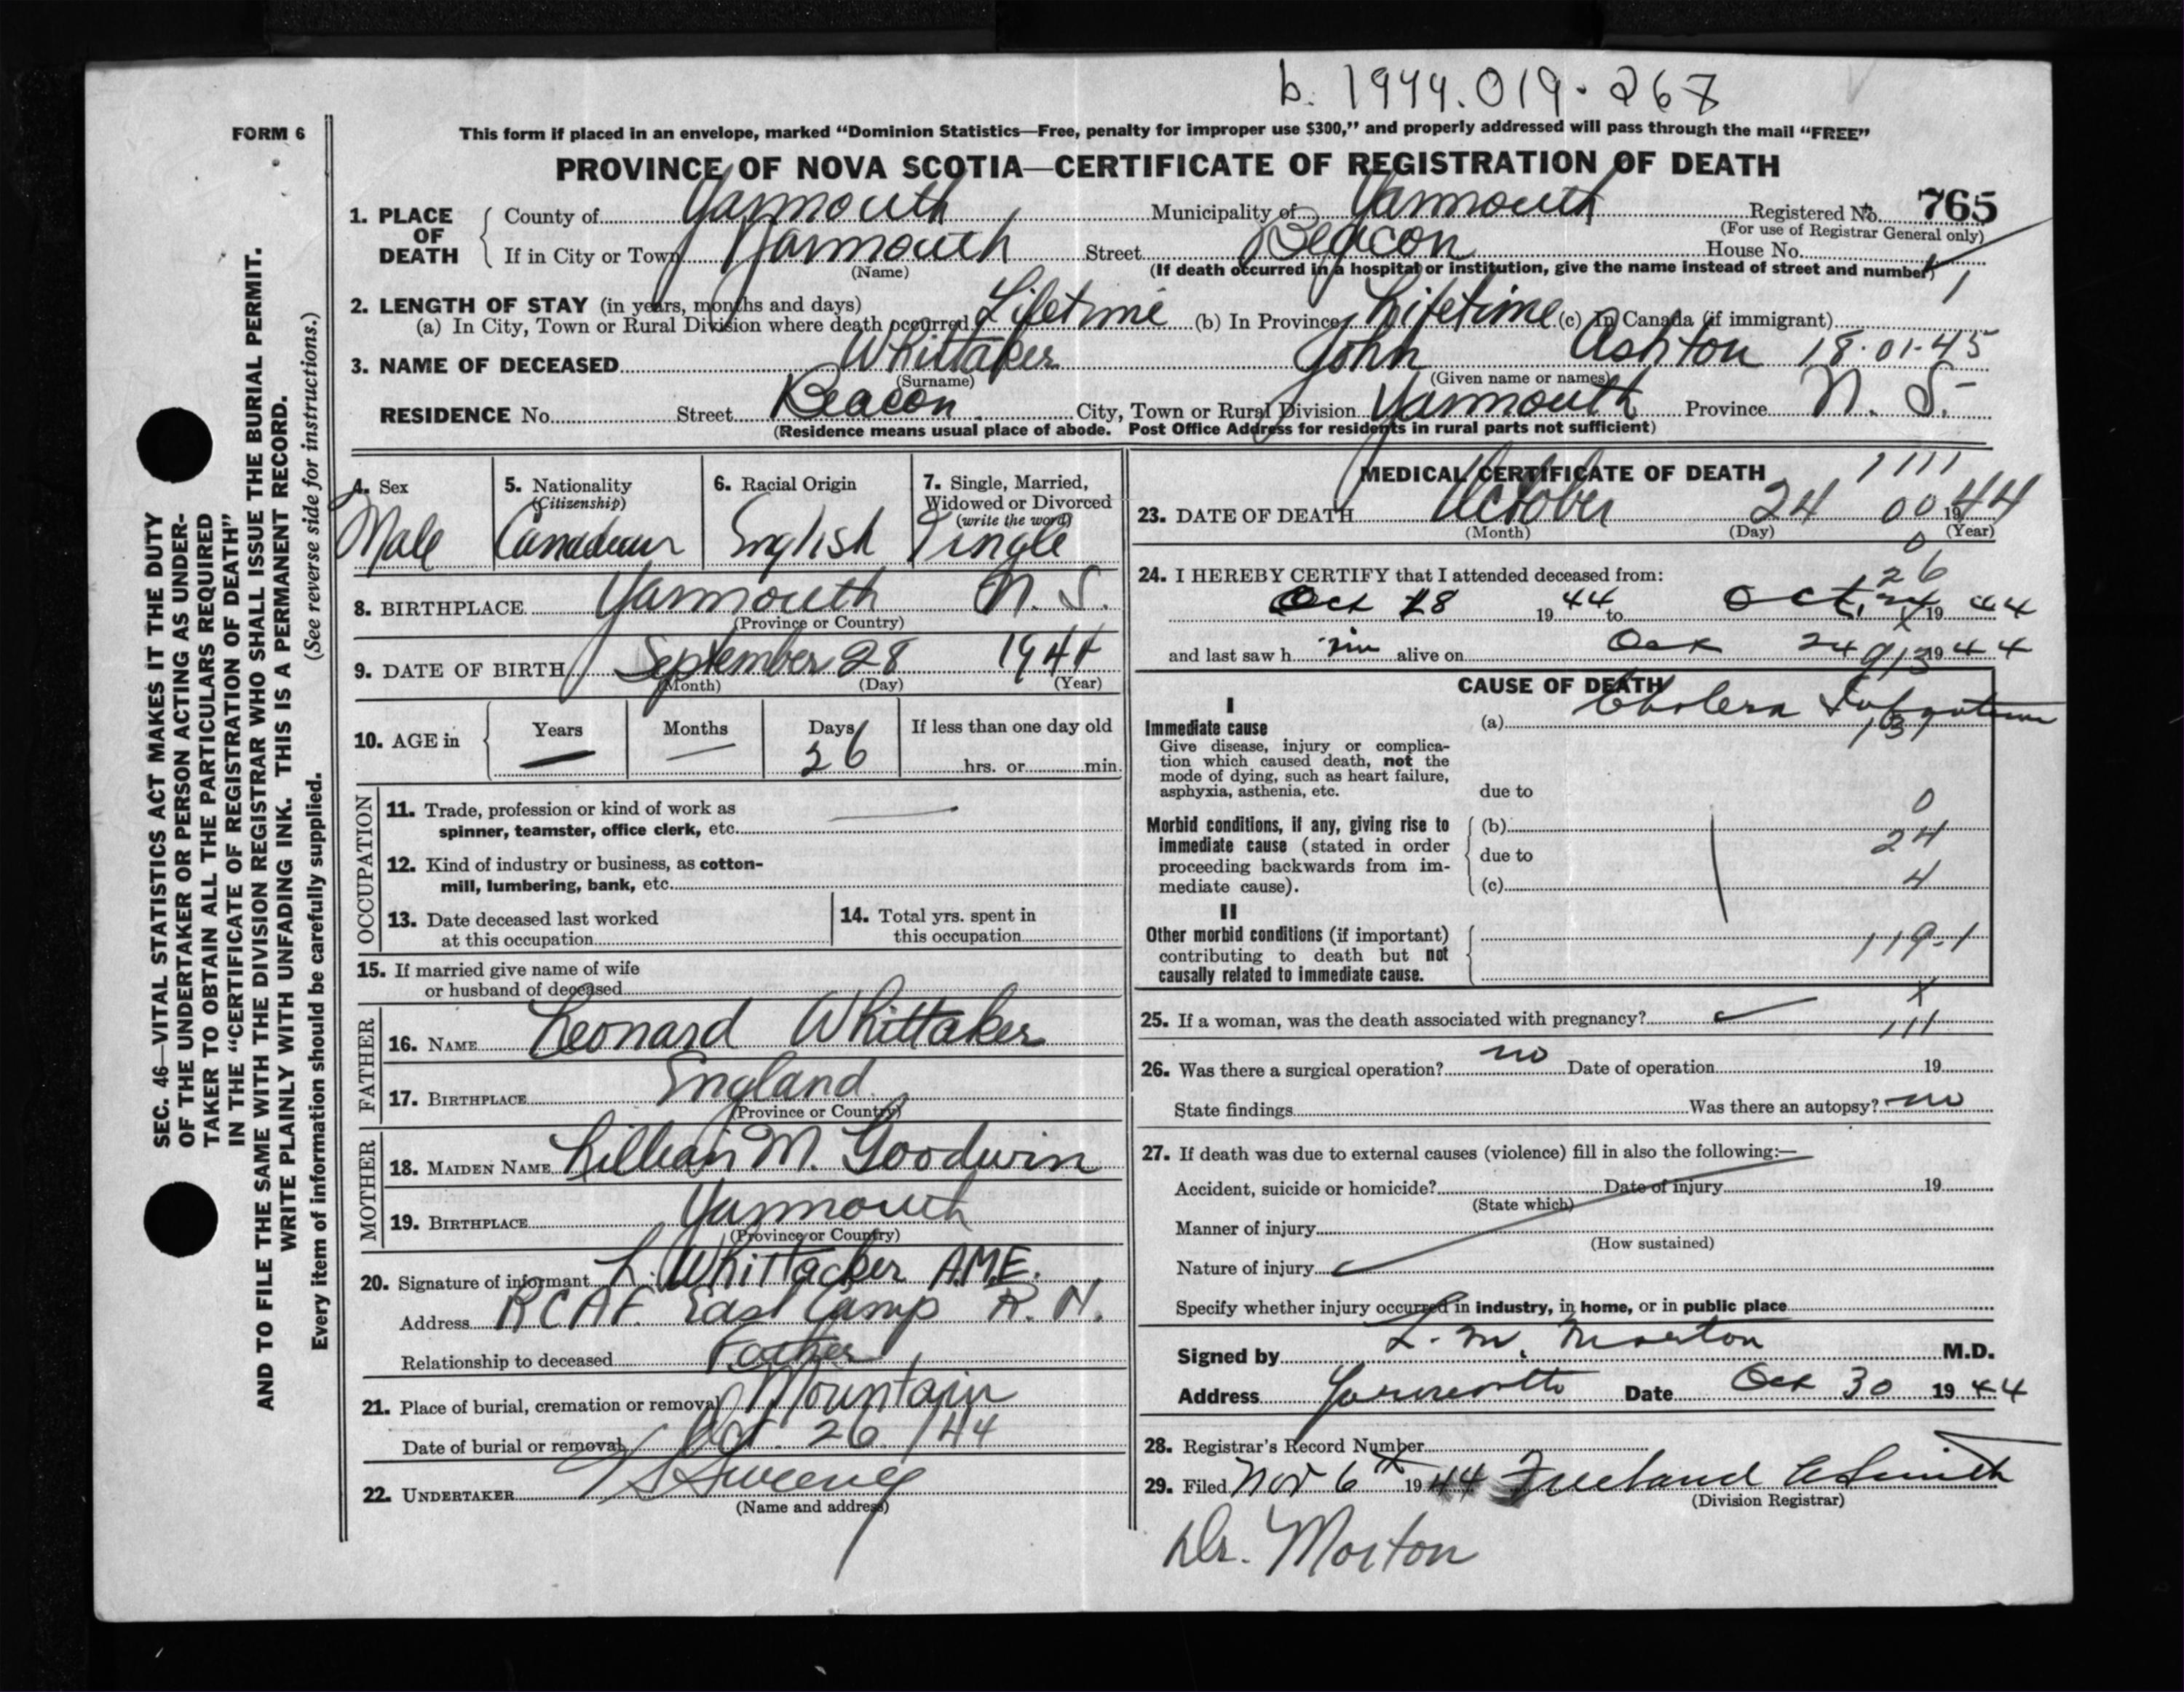 b. 1944.019-267
FORM 6
This form if placed in an envelope, marked “Dominion Statistics—Free, penalty for improper use $300,” and properly addressed will pass through the mail “FREE”
PROVINCE OF NOVA SCOTIA—CERTIFICATE OF REGISTRATION OF DEATH
SEC. 46—VITAL STATISTICS ACT MAKES IT THE DUTY
OF THE UNDERTAKER OR PERSON ACTING AS UNDER-
TAKER TO OBTAIN ALL THE PARTICULARS REQUIRED
IN THE “CERTIFICATE OF REGISTRATION OF DEATH”
AND TO FILE THE SAME WITH THE DIVISION REGISTRAR WHO SHALL ISSUE THE BURIAL PERMIT.
WRITE PLAINLY WITH UNFADING INK. THIS IS A PERMANENT RECORD.
Every item of information should be carefully supplied. (See reverse side for instructions.)
1. PLACE OF DEATH County of Yarmouth Municipality of Yarmouth Registered No. 765
(For use of Registrar General only)
If in City or Town Yarmouth Street Beacon House No.
(Name) (If death occurred in a hospital or institution, give the name instead of street and number)
2. LENGTH OF STAY (in years, months and days)
(a) In City, Town or Rural Division where death occurred Lifetime (b) In Province Lifetime (c) In Canada (if immigrant)
3. NAME OF DECEASED Whittaker John Ashton 18.01.45
(Surname) (Given name or names)
RESIDENCE No. Street Beacon City, Town or Rural Division Yarmouth Province N. S.
(Residence means usual place of abode. Post Office Address for residents in rural parts not sufficient)
4. Sex
Male
5. Nationality
(Citizenship)
Canadian
6. Racial Origin
English
7. Single, Married,
Widowed or Divorced
(write the word)
Single
8. BIRTHPLACE Yarmouth N. S.
(Province or Country)
9. DATE OF BIRTH September 28 1944
(Month) (Day) (Year)
10. AGE in Years — Months — Days 26 If less than one day old
hrs. or min.
OCCUPATION
11. Trade, profession or kind of work as
spinner, teamster, office clerk, etc. —
12. Kind of industry or business, as cotton-
mill, lumbering, bank, etc.
13. Date deceased last worked
at this occupation
14. Total yrs. spent in
this occupation
15. If married give name of wife
or husband of deceased
FATHER
16. NAME Leonard Whittaker
17. BIRTHPLACE England
(Province or Country)
MOTHER
18. MAIDEN NAME Lillian M. Goodwin
19. BIRTHPLACE Yarmouth
(Province or Country)
20. Signature of informant L. Whittacker A.M.E.
Address RCAF. East Camp R. N.
Relationship to deceased Father
21. Place of burial, cremation or removal Mountain
Date of burial or removal Oct. 26/44
22. UNDERTAKER Sweeny
(Name and address)
MEDICAL CERTIFICATE OF DEATH 1111
23. DATE OF DEATH October 24 00 1944
(Month) (Day) (Year)
0
24. I HEREBY CERTIFY that I attended deceased from: 26
Oct 18 1944 to Oct. 24 1944
and last saw him alive on Oct 24 1944
CAUSE OF DEATH
I
Immediate cause
Give disease, injury or complica-
tion which caused death, not the
mode of dying, such as heart failure,
asphyxia, asthenia, etc.
(a) Cholera
due to
Morbid conditions, if any, giving rise to
immediate cause (stated in order
proceeding backwards from im-
mediate cause).
0
(b)
24
due to
4
(c)
II
Other morbid conditions (if important)
contributing to death but not
causally related to immediate cause.
119-1
25. If a woman, was the death associated with pregnancy? X
111
26. Was there a surgical operation? no Date of operation 19
State findings Was there an autopsy? no
27. If death was due to external causes (violence) fill in also the following:—
Accident, suicide or homicide? Date of injury 19
(State which)
Manner of injury
(How sustained)
Nature of injury
Specify whether injury occurred in industry, in home, or in public place
Signed by L. M. Morton M.D.
Address Yarmouth Date Oct 30 1944
28. Registrar's Record Number
29. Filed Nov 6th 1944 Freeland A Smith
(Division Registrar)
Dr. Morton